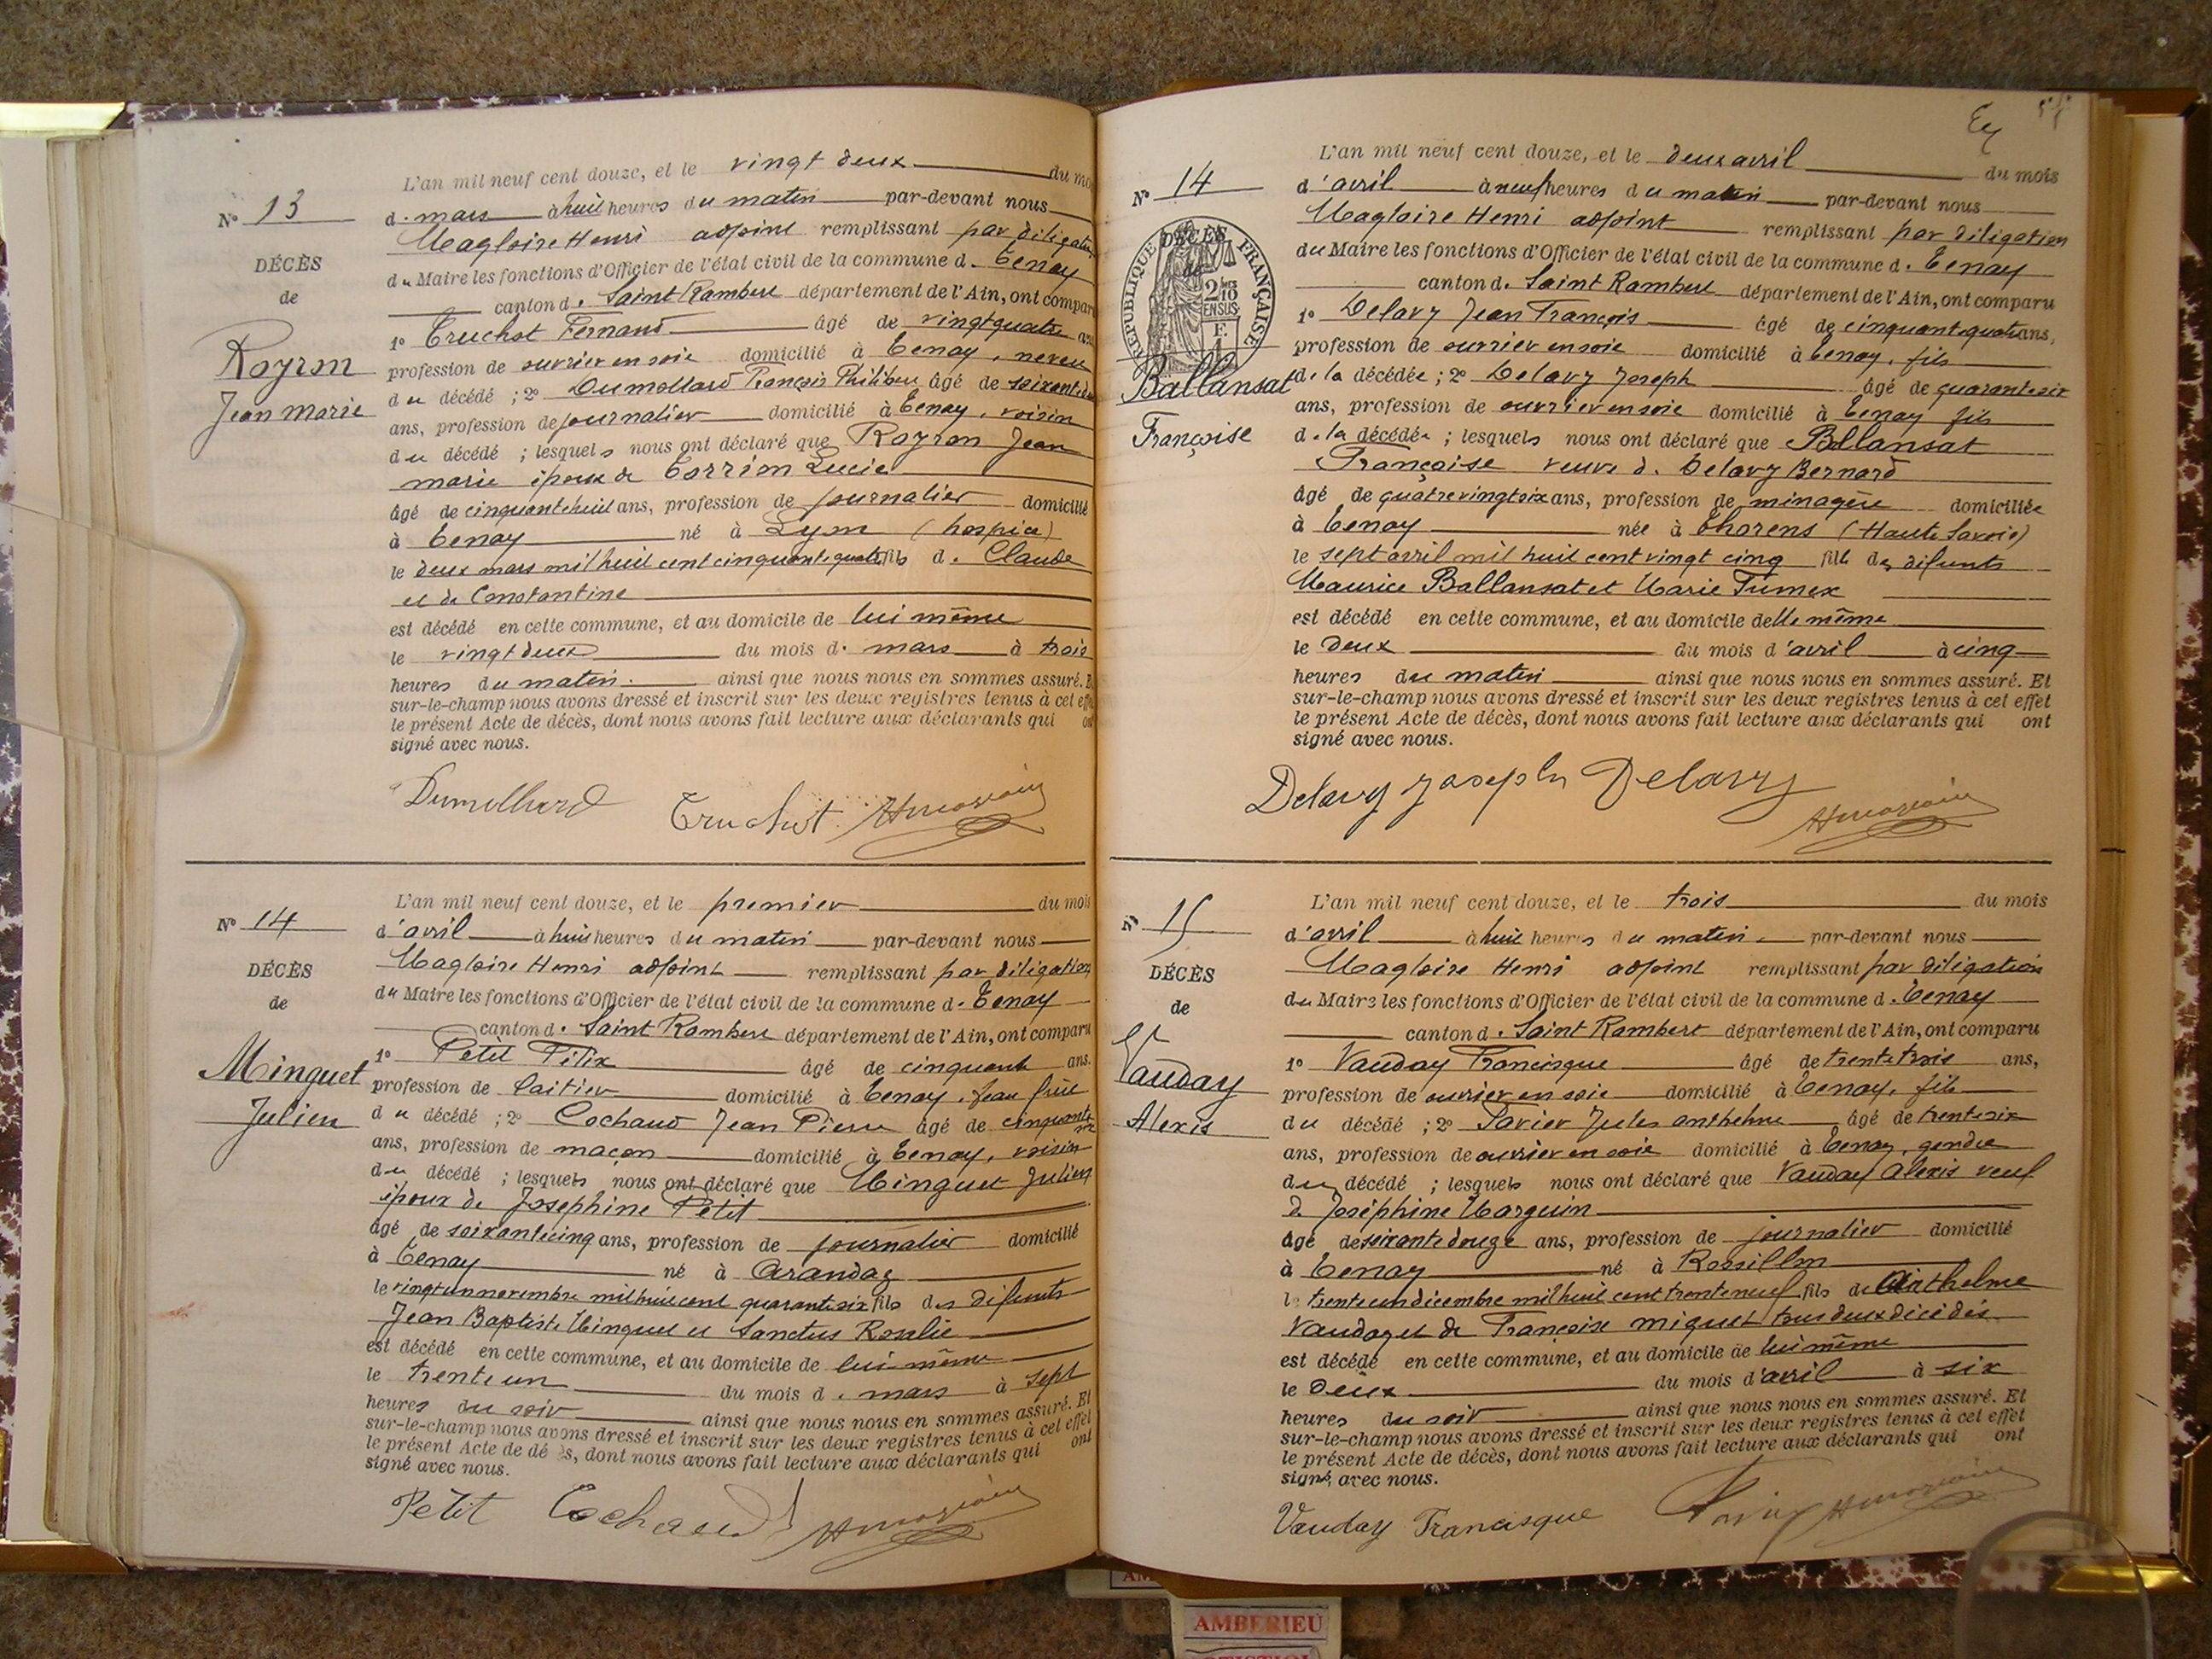 L'an mil neuf cent douze, et le vingt deux du mo
N° 13
d. mars à huit heures du matin par-devant nous
Magloire Henri adjoint remplissant par déligation
DÉCÈS
du Maire les fonctions d'Officier de l'état civil de la commune d. Tenay
de
canton d. Saint Rambert département de l'Ain, ont compar
1° Truchot Fernand âgé de vingt quatre an
Royron
profession de ouvrier en soie domicilié à Tenay, neveu
Jean Marie
du décédé ; 2° Dumollard François Philibert âgé de
ans, profession de journalier domicilié à Tenay, voisin
du décédé ; lesquels nous ont déclaré que Royron Jean
marie époux de Lucie
âgé de cinquante huit ans, profession de journalier domicilié
à Tenay né à Lyon (hospice)
le deux mars mil huit cent cinquante quatre fils d. Claude
et de Constantine
est décédé en cette commune, et au domicile de lui même
le vingt deux du mois d. mars à trois
heures du matin. ainsi que nous nous en sommes assuré. E
sur-le-champ nous avons dressé et inscrit sur les deux registres tenus à cet effe
le présent Acte de décès, dont nous avons fait lecture aux déclarants qui on
signé avec nous.
Dumollard Truchot
L'an mil neuf cent douze, et le premier du mois
N° 14
d'avril à huit heures du matin par-devant nous
Magloire Henri adjoint remplissant par déligation
DÉCÈS
du Maire les fonctions d'Officier de l'état civil de la commune d. Tenay
de
canton d. Saint Rambert département de l'Ain, ont comparu
1° Petit Félix âgé de cinquante ans.
Minguet
profession de laitier domicilié à Tenay, beau frère
Julien
du décédé ; 2° Cochaud Jean Pierre âgé de cinquante
ans, profession de maçon domicilié à Tenay, voisin
du décédé ; lesquels nous ont déclaré que Minguet Julien
époux de Josephine Petit
âgé de soixante cinq ans, profession de journalier domicilié
à Tenay né à Arandas
le vingt un novembre mil huit cent quarante six fils des défunts
Jean Baptiste Minguet et Sanctus Rosalie
est décédé en cette commune, et au domicile de lui même
le trente un du mois d. mars à sept
heures du soir ainsi que nous nous en sommes assuré. Et
sur-le-champ nous avons dressé et inscrit sur les deux registres tenus à cet effet
le présent Acte de décès, dont nous avons fait lecture aux déclarants qui ont
signé avec nous.
Petit Cochaud
L'an mil neuf cent douze, et le deux avril du mois
N° 14
d'avril à neuf heures du matin par-devant nous
Magloire Henri adjoint remplissant par déligation
RÉPUBLIQUE FRANÇAISE
DÉCÈS
de
2 10
EN SUS
du Maire les fonctions d'Officier de l'état civil de la commune d. Tenay
canton d. Saint Rambert département de l'Ain, ont comparu
1° Delavy Jean François âgé de cinquante quatre ans,
profession de ouvrier en soie domicilié à Tenay, fils
Ballansat
de la décédée ; 2° Delavy Joseph âgé de quarante six
ans, profession de ouvrier en soie domicilié à Tenay fils
Françoise
de la décédée ; lesquels nous ont déclaré que Ballansat
Françoise veuve d. Delavy Bernard
âgé de quatre vingt six ans, profession de ménagère domiciliée
à Tenay née à Thorens (Haute Savoie)
le sept avril mil huit cent vingt cinq fille des défunts
Maurice Ballansat et Marie Tumex
est décédé en cette commune, et au domicile delle même
le deux du mois d'avril à cinq
heures du matin ainsi que nous nous en sommes assuré. Et
sur-le-champ nous avons dressé et inscrit sur les deux registres tenus à cet effet
le présent Acte de décès, dont nous avons fait lecture aux déclarants qui ont
signé avec nous.
Delavy Joseph Delavy
L'an mil neuf cent douze, et le trois du mois
N° 15
d'avril à huit heures du matin. par-devant nous
Magloire Henri adjoint remplissant par déligation
DÉCÈS
du Maire les fonctions d'Officier de l'état civil de la commune d. Tenay
de
canton d. Saint Rambert département de l'Ain, ont comparu
1° Vauday Francisque âgé de trente trois ans,
Vauday
profession de ouvrier en soie domicilié à Tenay, fils
Alexis
du décédé ; 2° Jules Anthelme âgé de trente six
ans, profession de ouvrier en soie domicilié à Tenay, gendre
du décédé ; lesquels nous ont déclaré que Vauday Alexis veuf
d. Joséphine Marguin
âgé de soixante douze ans, profession de journalier domicilié
à Tenay né à Rossillon
le trente un décembre mil huit cent trente neuf fils de Anthelme
Vauday et de Françoise miguet tous deux décédés.
est décédé en cette commune, et au domicile de lui même
le deux du mois d'avril à six
heures du soir ainsi que nous nous en sommes assuré. Et
sur-le-champ nous avons dressé et inscrit sur les deux registres tenus à cet effet
le présent Acte de décès, dont nous avons fait lecture aux déclarants qui ont
signé avec nous.
Vauday Francisque
AMBERIEU